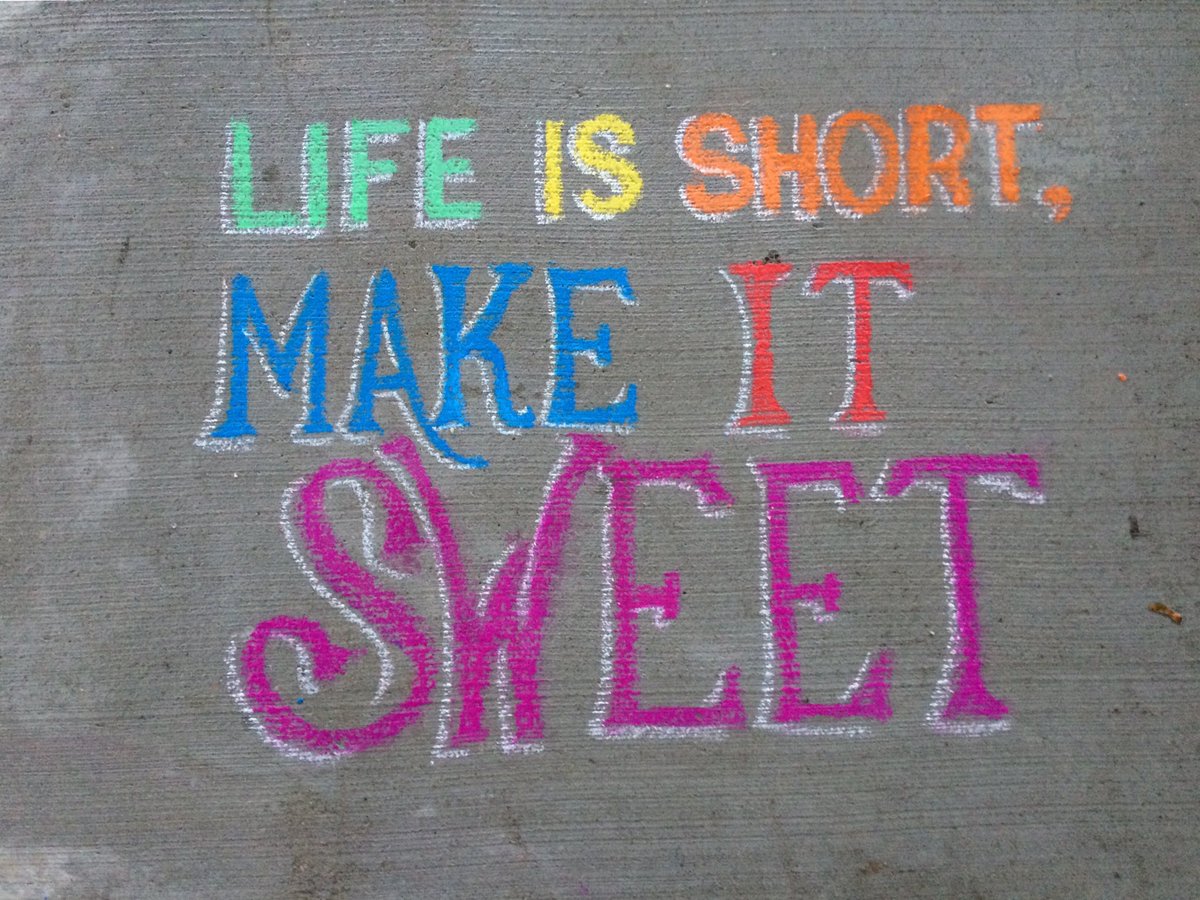 LIFE IS SHORT,
MAKE IT
SWEET